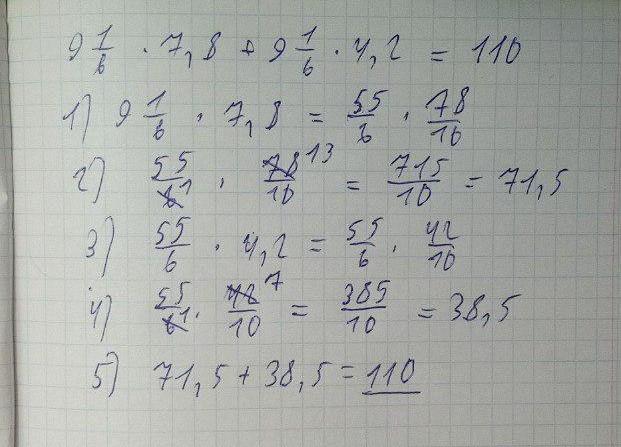 9 1/6 · 7,8 + 9 1/6 · 4,2 = 110
1) 9 1/6 · 7,8 = 55/6 · 78/10
2) 55/6 1 · 78 13/10 = 715/10 = 71,5
3) 55/6 · 4,2 = 55/6 · 42/10
4) 55/6 1 · 42 7/10 = 385/10 = 38,5
5) 71,5 + 38,5 = 110